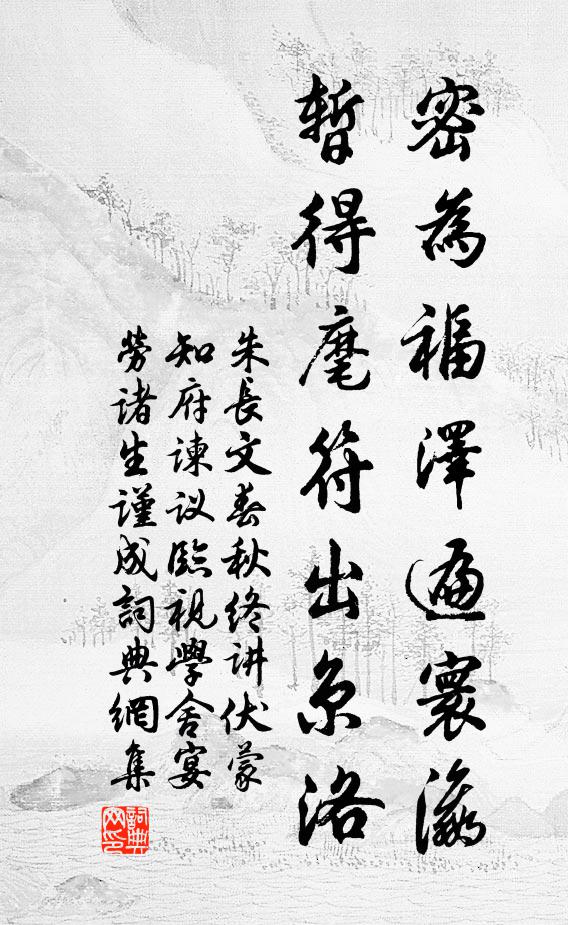 密為福澤遍寰瀛
暫得麾符出京洛
朱長文春秋终讲伏蒙
知府谏议臨視學舍宴
勞诸生谨成詞典網集
詞典网印